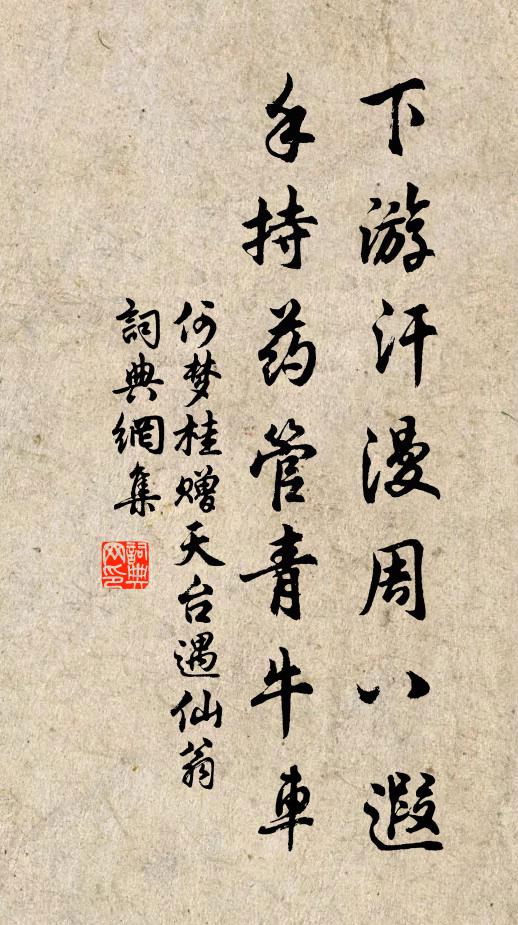 下游汗漫周八遐
手持药管青牛車
何梦桂赠天台遇仙翁
詞典網集
詞典网印